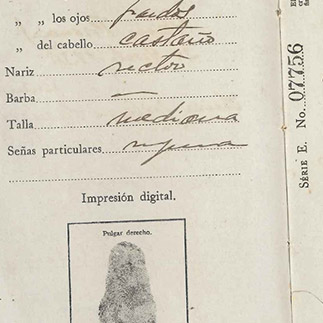 „ „ los ojos pardos
„ „ del cabello castaño
Nariz recto
Barba —
Talla mediana
Señas particulares ninguna
Impresión digital.
Pulgar derecho.
Série E. No. 07756